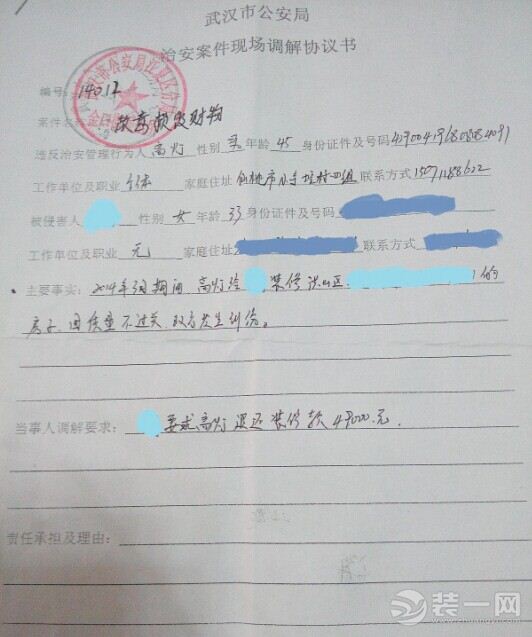 武汉市公安局
治安案件现场调解协议书
编号：14012
案件名称：故意损毁财物
违反治安管理行为人 高灯 性别 男 年龄 45 身份证件及号码
工作单位及职业 个体 家庭住址 仙桃市 村四组 联系方式
被侵害人 性别 女 年龄 33 身份证件及号码
工作单位及职业 无 家庭住址 联系方式
主要事实：2014年 期间 高灯给 装修洪山区 的
房子，因质量不过关，双方发生纠纷。
当事人调解要求： 要求高灯退还装修款49000元.
责任承担及理由：
装一网